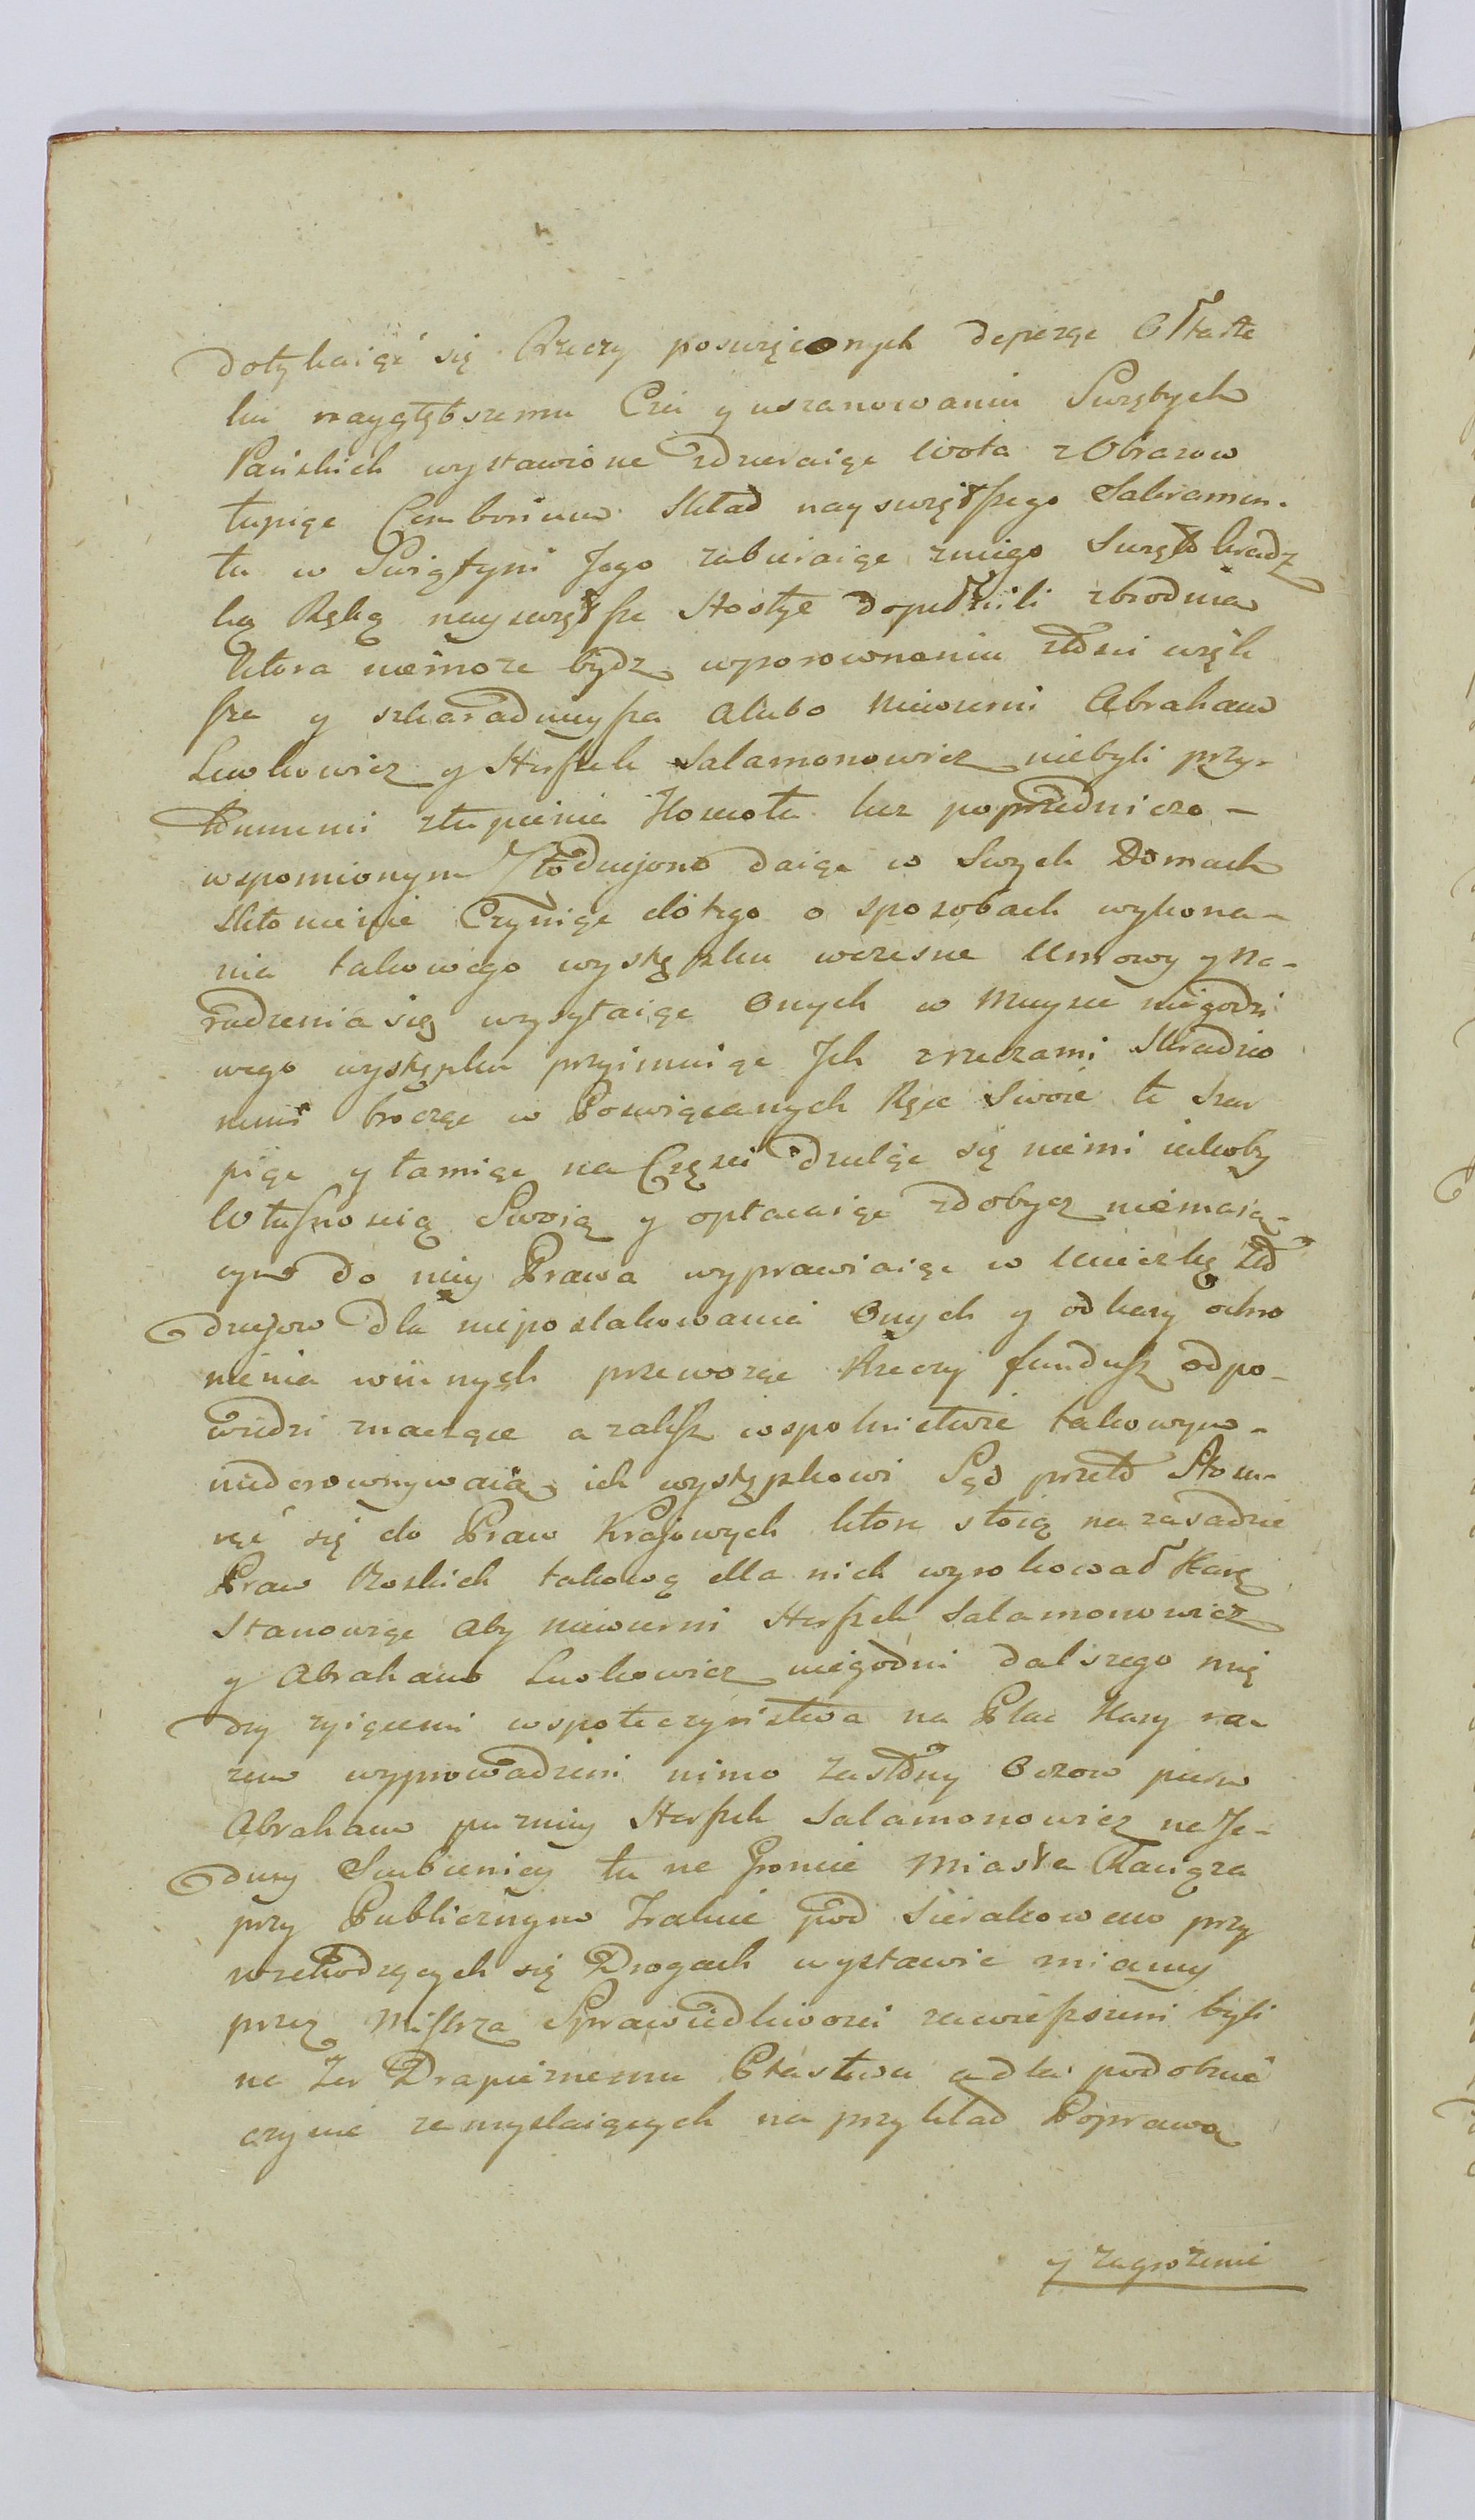 dotykaiąc się Rzeczy poswięconych depcząc Ołtarze
ku nayglębszemu Czci y uszanowaniu Swiętych
Pańskich wystawione zdzieraiąc wota z Obrazow
łupiąc Cimborium Skład nayswiętszego Sakramen-
tu w Swiątyni Jego zabieraiąc zniego Swiętokradz
ką Ręką nayswiętsze Hostye dopełnili zbrodnia
ktora niemoze bydz wporownaniu złosci więk
sza y szkaradnieysza alubo Niewierni Abraham
Lewkowicz y Herszek Salamonowicz niebyli przy-
tomnemi złupienia Koscioła lecz poprzedniczo-
wspomionym Złodziejom daiąc w Swych Domach
skłonienie Czyniąc dotego o sposobach wykona-
nia takowego występku wczesne Umowy y Na-
radzenia się wysyłaiąc Onych w Mieysce niegodzi
wego występku przyimuiąc Jch z rzeczami Skradzio
nemi brocząc w Poswięcanych Ręce Swoie te szar
piąc y łamiąc na Częsci dzieląc się niemi iakoby
Własnoscią Swoią y opłacaiąc zdobycz niemaią-
cym do niey Prawa wyprawiaiąc w Ucieczkę Zło
dziejow dla nieposzlakowania Onych y od kary ochro
nienia winnych przewożąc Rzeczy fundusz odpo-
wiedzi znaczące a zatysz wspolnictwie takowym-
niedorownywaią ich występkowi Sąd przeto Stosu-
iąc się do Praw Krajowych ktore stoią na zasadzie
Praw Boskich takową dla nich wyrokował Karę
Stanowiąc Aby Niewierni Herszek Salamonowicz
y Abraham Lewkowicz niegodni dalszego mię
dzy zyiącemi wspołeczyństwa na Plac Kary ra-
zem wyprowadzeni nimo zasłony Oczow pierw
Abraham pozniey Herszek Salamonowicz na Je-
dney Szubienicy tu na Groncie Miasta
przy Publicznym Trakcie pod Sierakowem przy
rozchodzących się Drogach wystawić mianey
przez Mistrza Sprawiedliwosci zawieszeni byli
na Zer Drapieznemu Ptastwu a dla podobnie
czynić zamyslaiących na przykład Poprawą
y zagrożenie